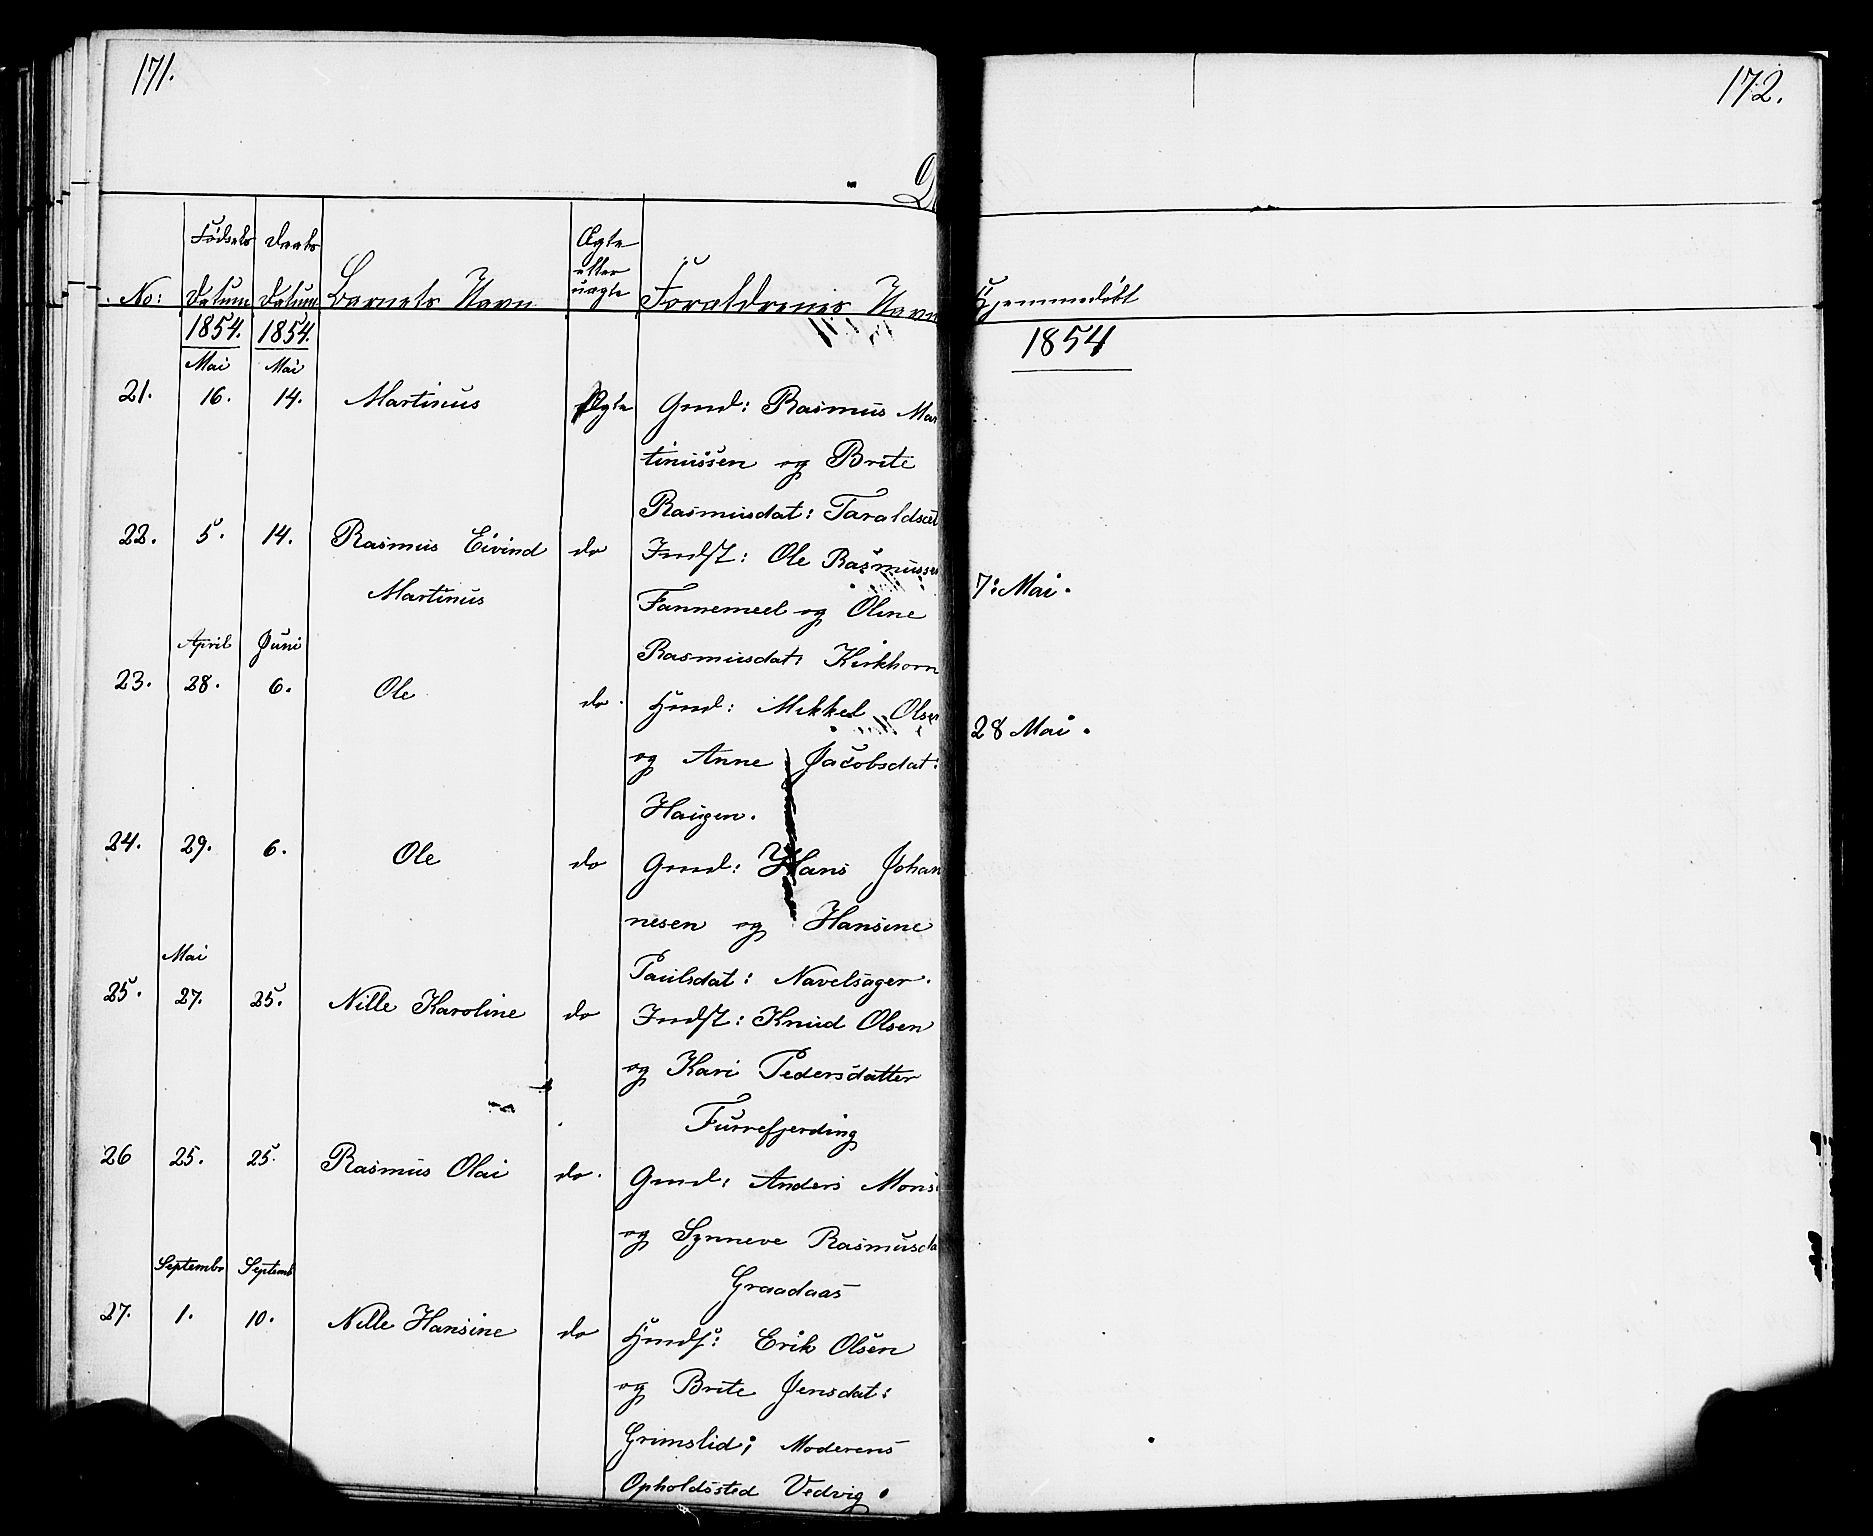 171.
172.
D
Fødsels Daabs
Ægte
eller
uægte
No: Datum Datum Barnets Navn Forældrenes Navn
Hjemmedøbt
1854. 1854.
1854
Mai Mai
21. 16. 14. Martinus Ægte Gmd: Rasmus Mar
tinussen og Brite
Rasmusdat: Taraldset
22. 5. 14. Rasmus Eivind do Indst: Ole Rasmusse
7: Mai.
Martinus Fannemeel og Oline
Rasmusdat: Kirkhorn
April Juni
23. 28. 6. Ole do. Hmd: Mikkel Olsen
28 Mai.
og Anne Jacobsdat:
Haugen.
24. 29. 6. Ole do Gmd: Hans Johan
nesen og Hansine
Paulsdat: Navelsager.
Mai
25. 27. 25. Nille Karoline do Indst: Knud Olsen
og Kari Pedersdatter
Furrefjerding
26 25. 25. Rasmus Olai do. Gmd: Anders Mons
og Synneve Rasmusda
Graadaas
Septembr Septemb
27. 1. 10. Nille Hansine do Hmds: Erik Olsen
og Brite Jensdat:
Grimslid; Moderens
Opholdssted Vedvig.